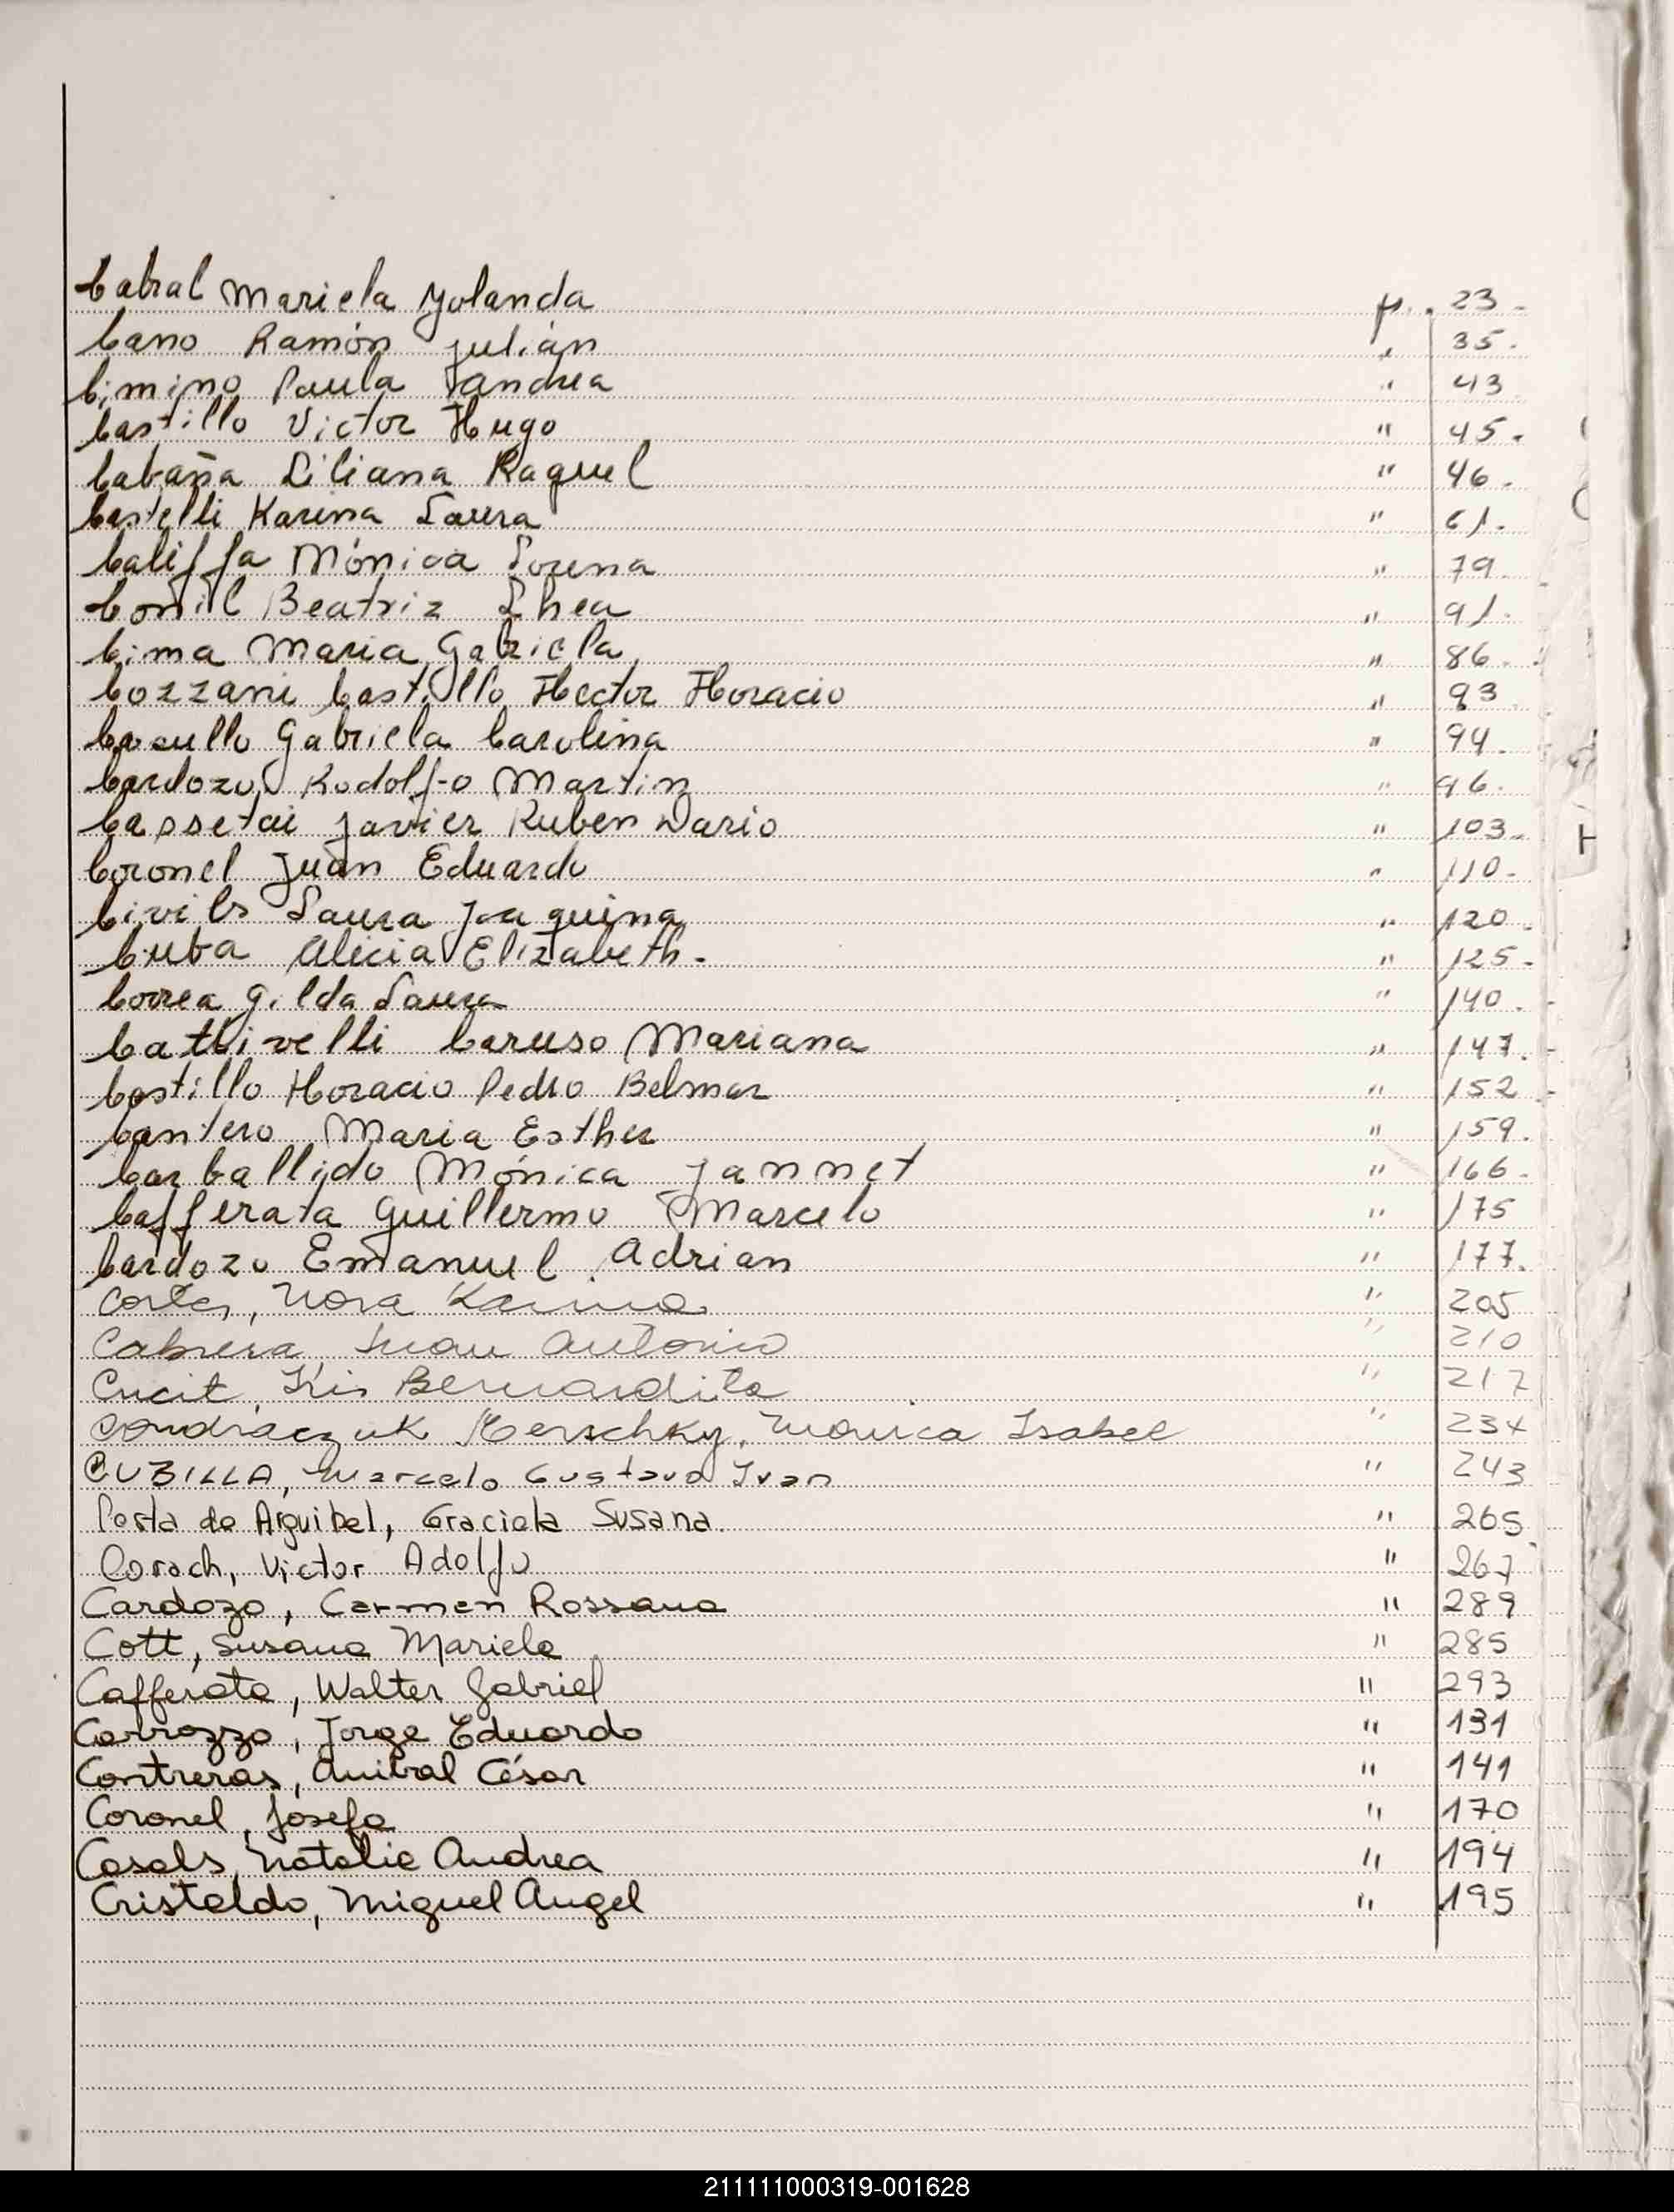 Cabral Mariela Yolanda p. 23.
Cano Ramón Julián " 35.
Cimino Paula Sandrea " 43
Castillo Victor Hugo " 45.
Cabaña Liliana Raquel " 46.
Castelli Karina Laura " 61.
Califfa Mónica Lorena " 79
Conil Beatriz Lhea " 91.
Cima Maria Gabriela " 86.
Cozzani Castillo Hector Horacio " 93
Casullo Gabriela Carolina " 94.
Cardozo Rodolfo Martin " 96.
Cassetai Javier Ruben Dario " 103.
Coronel Juan Eduardo " 110.
Civils Laura Joaquina " 120.
Cuba Alicia Elizabeth. " 125.
Correa Gilda Laura " 140.
Cattivelli Caruso Mariana " 147.
Castillo Horacio Pedro Belmar " 152
Cantero Maria Esther " 159.
Carballido Mónica Jannet " 166.
Cafferata Guillermo Marcelo " 175
Cardozo Emanuel Adrian " 177.
Cortes, Nora Karina " 205
Cabrera Juan Antonio " 210
Cucit, Iris Bernardita " 217
Condraczuk Herschky, Monica Isabel " 234
CUBILLA, Marcelo Gustavo Ivan " 243
Costa de Arguibel, Graciela Susana. " 265
Corach, Victor Adolfo " 267
Cardozo, Carmen Rossana " 289
Cott, Susana Mariela " 285
Cafferata, Walter Gabriel " 293
Carrozzo, Jorge Eduardo " 131
Contreras, Anibal César " 141
Coronel, Josefa " 170
Casals, Natalia Andrea " 194
Cristaldo, Miguel Angel " 195
211111000319-001628